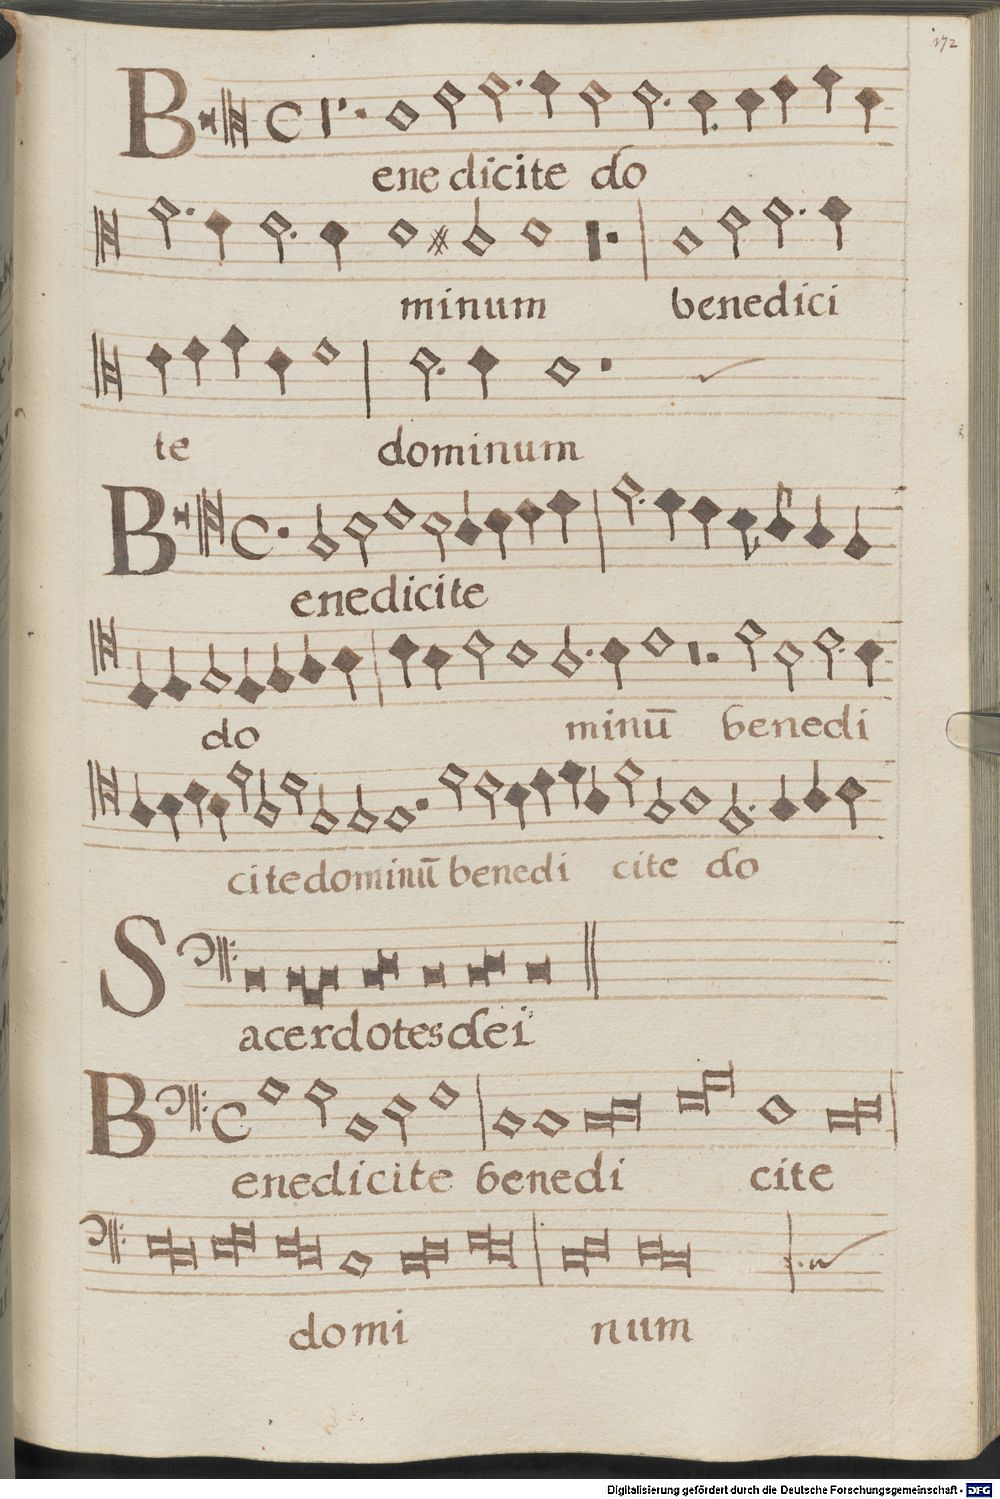 172
Benedicite do
minum benedici
te dominum
Benedicite
do minū benedi
cite dominū benedi cite do
Sacerdotes dei
Benedicite benedi cite
domi num
Digitalisierung gefördert durch die Deutsche Forschungsgemeinschaft - DFG